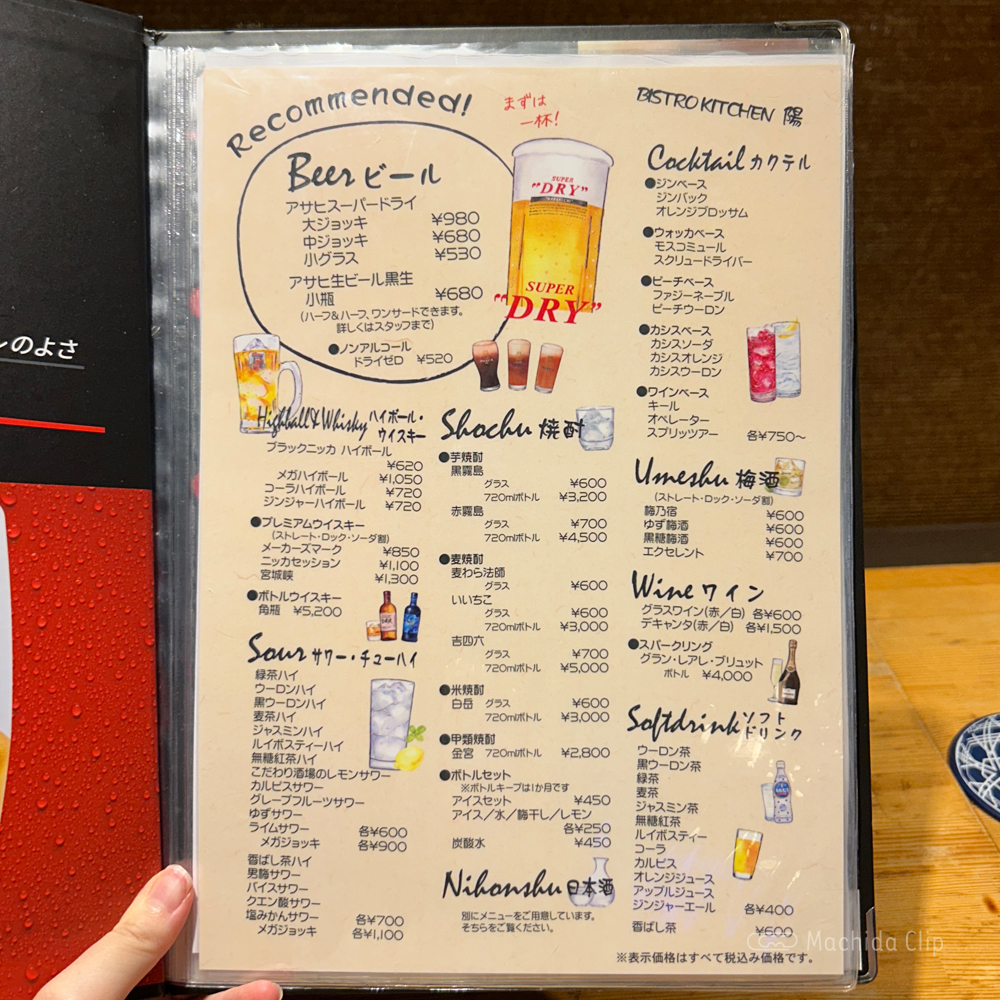 レのよさ
Recommended!
まずは
一杯!
Beer ビール
アサヒスーパードライ
大ジョッキ ¥980
中ジョッキ ¥680
小グラス ¥530
アサヒ生ビール黒生
小瓶 ¥680
(ハーフ&ハーフ、ワンサードできます。
詳しくはスタッフまで)
●ノンアルコール
ドライゼロ ¥520
SUPER
"DRY"
SUPER
"DRY"
Highball&Whisky ハイボール・
ウイスキー
ブラックニッカ ハイボール
¥620
メガハイボール ¥1,050
コーラハイボール ¥720
ジンジャーハイボール ¥720
●プレミアムウイスキー
(ストレート・ロック・ソーダ割)
メーカーズマーク ¥850
ニッカセッション ¥1,100
宮城峡 ¥1,300
●ボトルウイスキー
角瓶 ¥5,200
Sour サワー・チューハイ
緑茶ハイ
ウーロンハイ
黒ウーロンハイ
麦茶ハイ
ジャスミンハイ
ルイボスティーハイ
無糖紅茶ハイ
こだわり酒場のレモンサワー
カルピスサワー
グレープフルーツサワー
ゆずサワー
ライムサワー 各¥600
メガジョッキ 各¥900
香ばし茶ハイ
男梅サワー
バイスサワー
クエン酸サワー
塩みかんサワー 各¥700
メガジョッキ 各¥1,100
Shochu 焼酎
●芋焼酎
黒霧島
グラス ¥600
720mlボトル ¥3,200
赤霧島
グラス ¥700
720mlボトル ¥4,500
●麦焼酎
麦わら法師
グラス ¥600
いいちこ
グラス ¥600
720mlボトル ¥3,000
吉四六
グラス ¥700
720mlボトル ¥5,000
●米焼酎
白岳 グラス ¥600
720mlボトル ¥3,000
●甲類焼酎
金宮 720mlボトル ¥2,800
●ボトルセット
※ボトルキープは1か月です
アイスセット ¥450
アイス/水/梅干し/レモン
各¥250
炭酸水 ¥450
Nihonshu 日本酒
別にメニューをご用意しています。
そちらをご覧ください。
BISTRO KITCHEN 陽
Cocktail カクテル
●ジンベース
ジンバック
オレンジブロッサム
●ウォッカベース
モスコミュール
スクリュードライバー
●ピーチベース
ファジーネーブル
ピーチウーロン
●カシスベース
カシスソーダ
カシスオレンジ
カシスウーロン
●ワインベース
キール
オペレーター
スプリッツアー 各¥750~
Umeshu 梅酒
(ストレート・ロック・ソーダ割)
梅乃宿 ¥600
ゆず梅酒 ¥600
黒糖梅酒 ¥600
エクセレント ¥700
Wine ワイン
グラスワイン(赤/白) 各¥600
デキャンタ(赤/白) 各¥1,500
●スパークリング
グラン・レアレ・ブリュット
ボトル ¥4,000
Softdrink ソフト
ドリンク
ウーロン茶
黒ウーロン茶
緑茶
麦茶
ジャスミン茶
無糖紅茶
ルイボスティー
コーラ
カルピス
オレンジジュース
アップルジュース
ジンジャーエール 各¥400
香ばし茶 ¥600
※表示価格はすべて税込み価格です。
Machida Clip